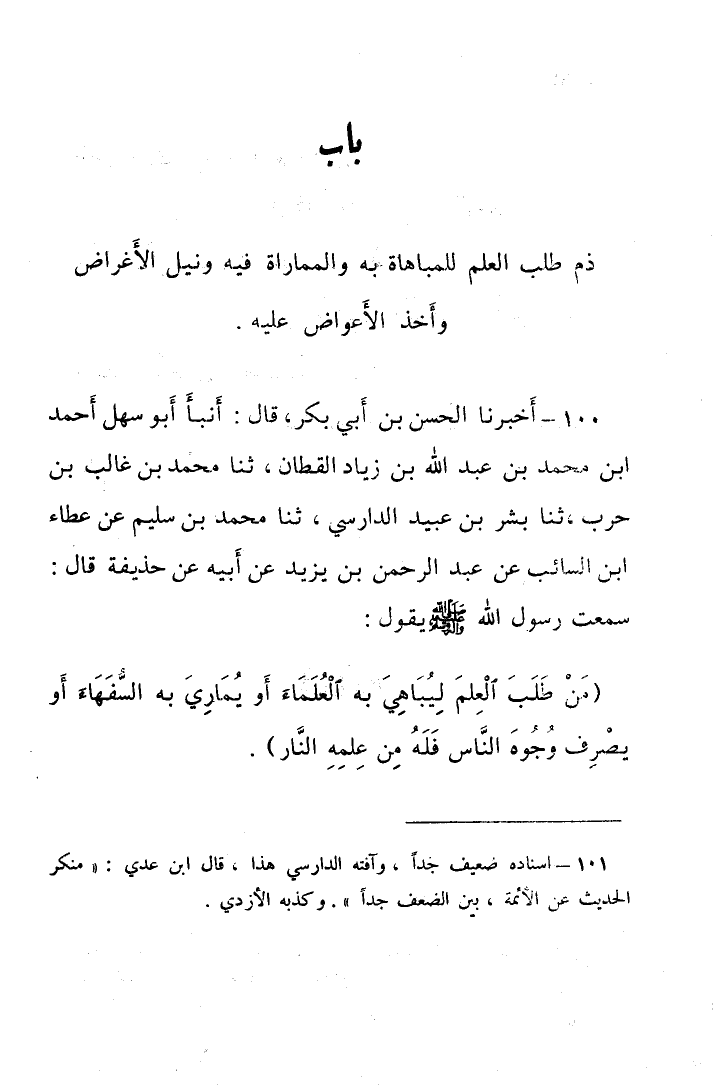 باب
ذم طلب العلم للمباهاة به والمماراة فيه ونيل الأَغراض
وأَخذ الأَعواض عليه .
١٠٠ – أَخبرنا الحسن بن أَبي بكر، قال : أَنبأَ أَبو سهل أَحمد
ابن محمد بن عبد الله بن زياد القطان ، ثنا محمد بن غالب بن
حرب ،ثنا بشر بن عبيد الدارسي ، ثنا محمد بن سليم عن عطاء
ابن السائب عن عبد الرحمن بن يزيد عن أَبيه عن حذيفة قال :
سمعت رسول الله ﷺ يقول :
(مَنْ طَلَبَ الْعِلمَ لِيُبَاهِيَ به الْعُلَمَاءَ أَو يُمَارِيَ به السُّفَهَاءَ أَو
يصْرِف وُجُوهَ النَّاس فَلَهُ مِن عِلمِهِ النَّار) .
١٠١ – اسناده ضعيف جداً ، وآفته الدارسي هذا ، قال ابن عدي : « منكر
الحديث عن الأئمة ، بين الضعف جداً » . وكذبه الأزدي .